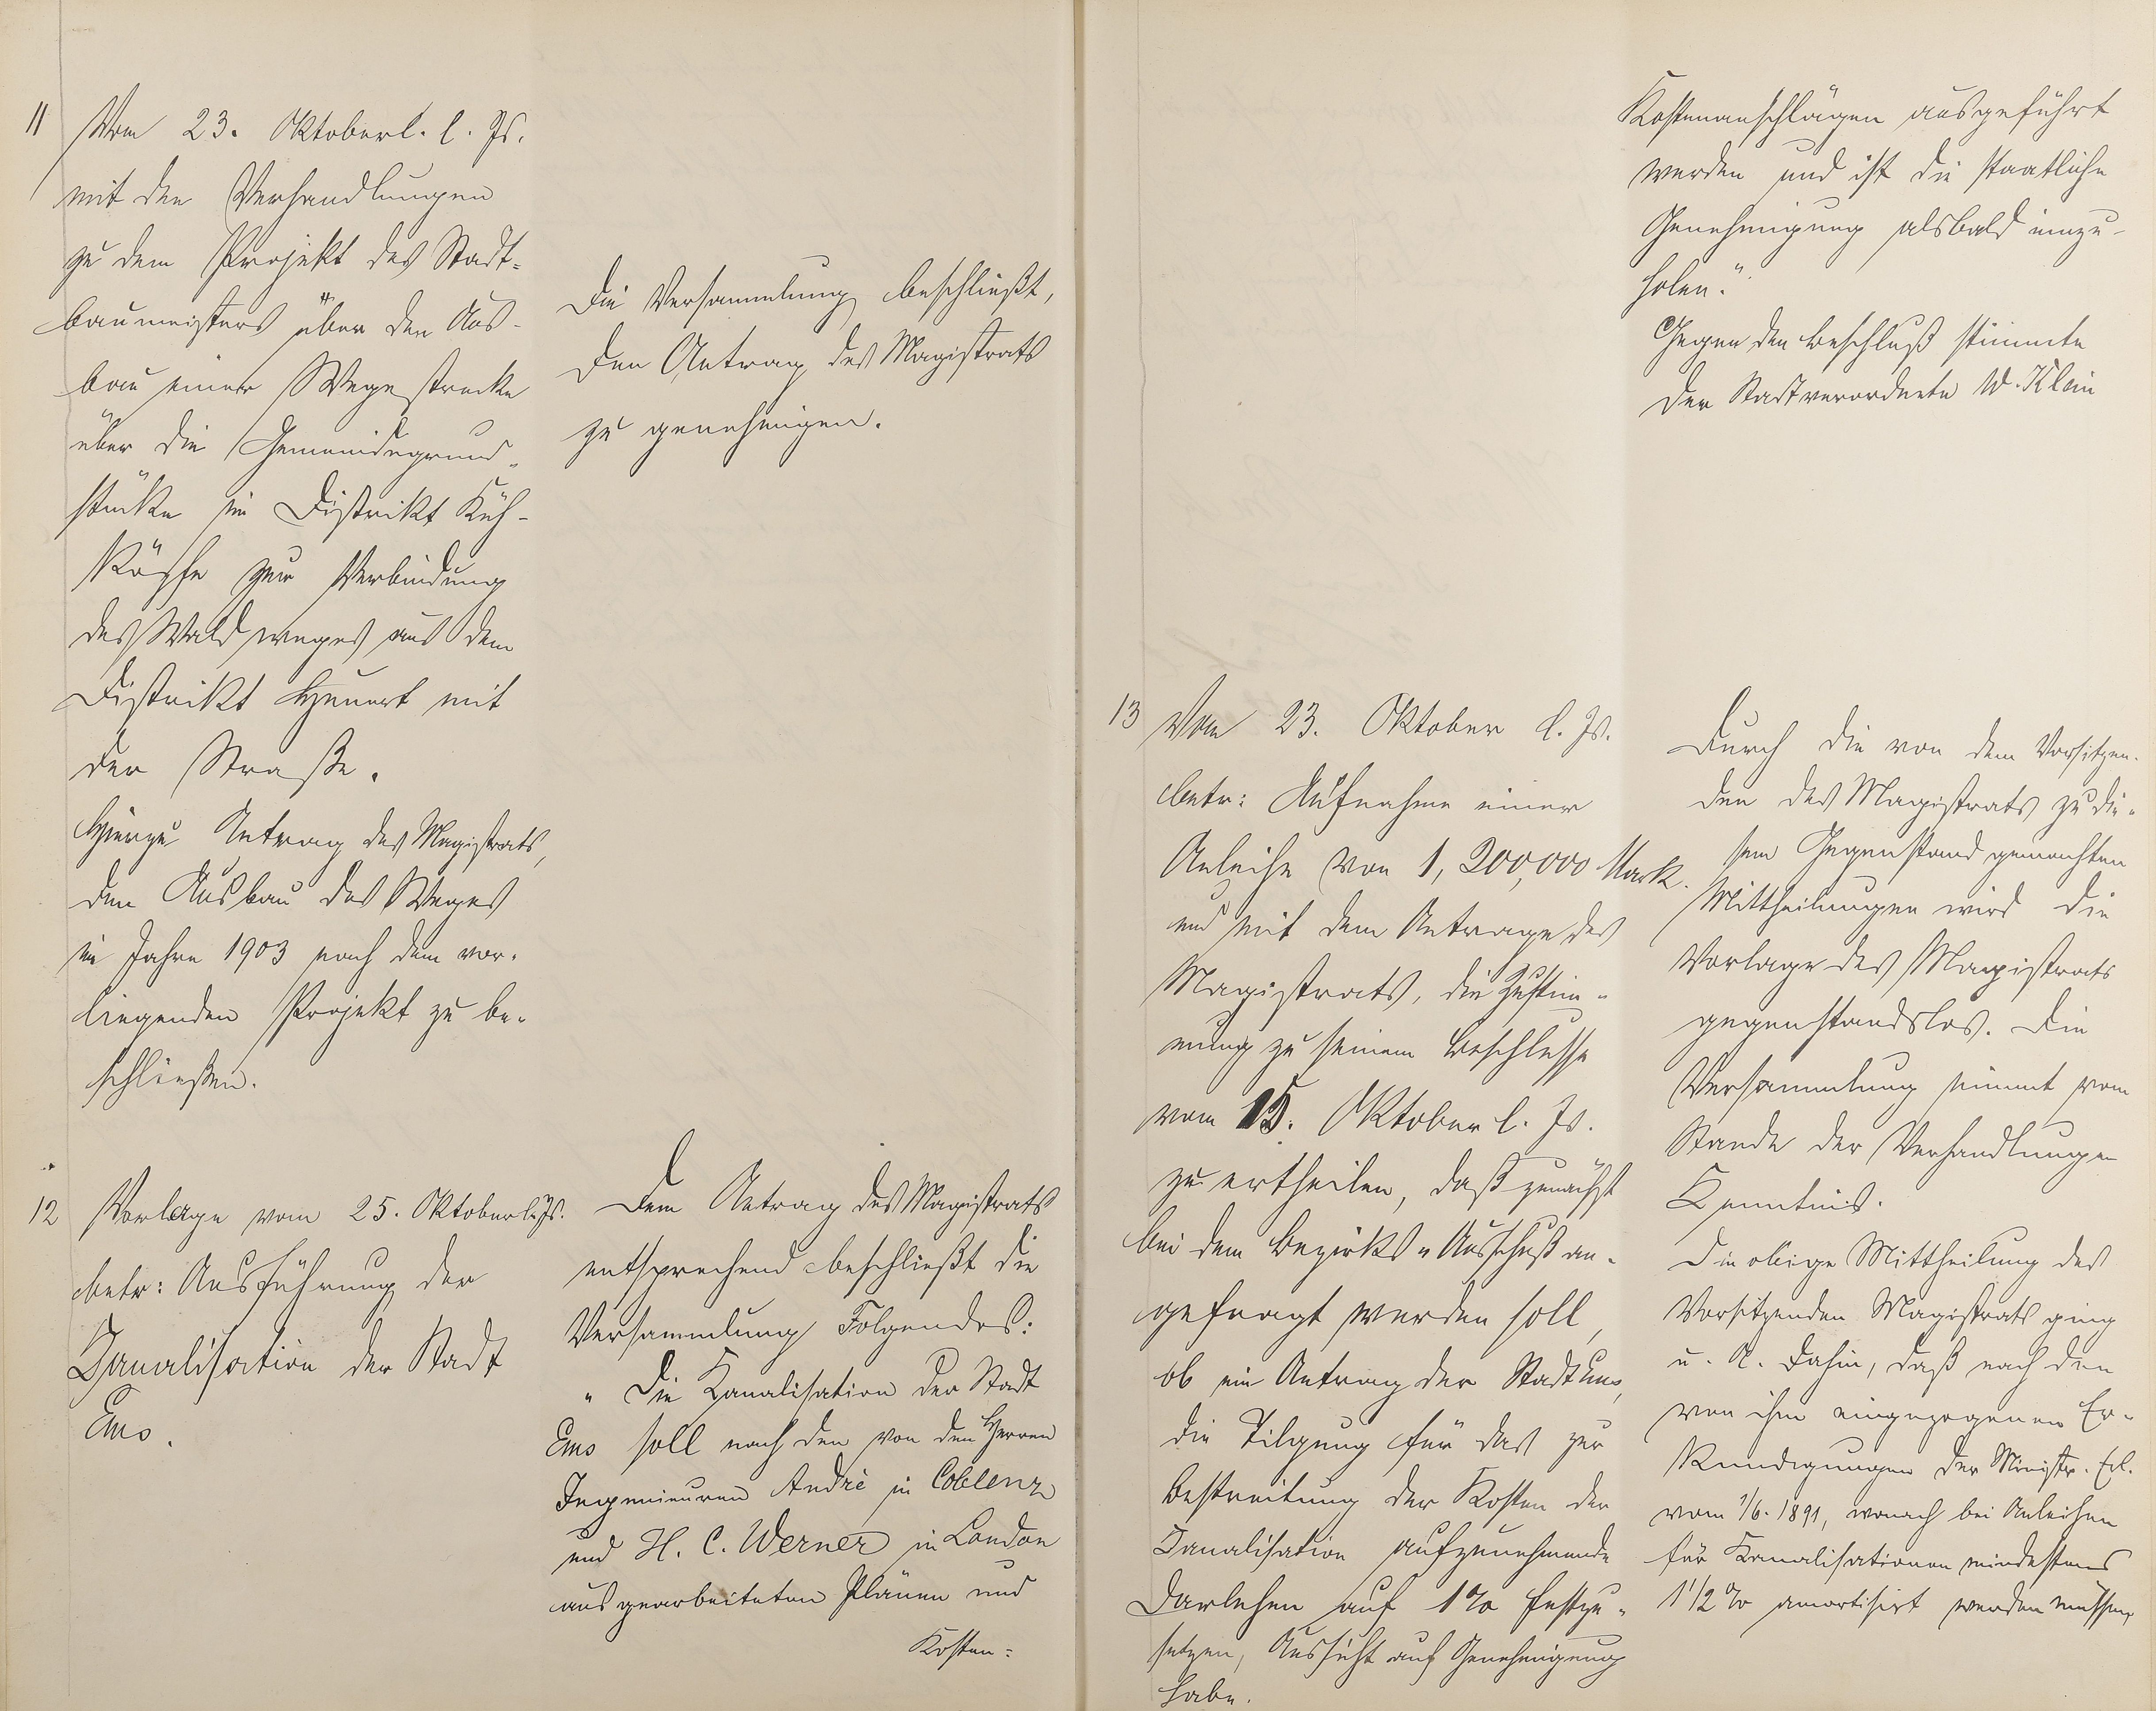 11 Vom 23. Oktoberl. l. Js.
mit den Verhandlungen
zu dem Projekt des Stadt-
baumeisters über den Aus-
bau einer Wegestrecke
über die Gemeindegrund-
stücke im Distrikt Küh-
köpfe zur Verbindung
des Waldweges aus dem
Distrikt mit
der Straße.
Hierzu Antrag des Magistrats,
den Ausbau des Weges
im Jahre 1903 nach dem vor-
liegenden Projekt zu be-
schließen.
Die Versammlung beschließt,
den Antrag des Magistrats
zu genehmigen.
12 Vorlage vom 25. Oktober l. Js.
betr: Ausführung der
Kanalisation der Stadt
Ems.
Dem Antrag des Magistrats
entsprechend beschließt die
Versammlung Folgendes:
" Die Kanalisation der Stadt
Ems soll nach den von den Herren
Ingenieuren André in Coblenz
und H. C. Werner in London
ausgearbeiteten Plänen und
Kosten=
Kostenanschlägen ausgeführt
werden und ist die staatliche
Genehmigung alsbald einzu-
holen."
Gegen den Beschluß stimmte
der Stadtverordnete W. Klein
13 Vom 23. Oktober l. Js.
betr: Aufnahme einer
Anleihe von 1,200,000 Mark.
und mit dem Antrage des
Magistrats, die Zustim-
mung zu seinem Beschlusse
vom 15. Oktober l. Js.
zu ertheilen, daß zunächst
bei dem Bezirks-Ausschuß an-
gefragt werden soll,
ob ein Antrag der Stadt Ems,
die Tilgung für das zur
Bestreitung der Kosten der
Kanalisation aufzunehmende
Darlehen auf 1% festzu-
setzen, Aussicht auf Genehmigung
habe.
Durch die von dem Vorsitzen-
den des Magistrats zu die-
sem Gegenstand gemachten
Mittheilungen wird die
Vorlage des Magistrats
gegenstandslos. Die
Versammlung nimmt vom
Stande der Verhandlungen
Kenntnis.
Die obige Mittheilung des
Vorsitzenden Magistrats ging
u. A. dahin, daß nach den
von ihm eingezogenen Er-
kundigungen der Ministr. Erl.
vom 1/6. 1891, wonach bei Anleihen
für Kanalisationen mindestens
1 1/2 % amortisirt werden müssen,